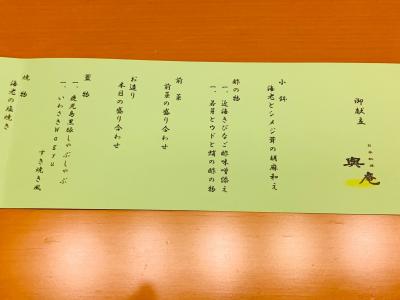 御献立
日本料理
輿庵
小鉢
海老としめじ茸の胡麻和え
酢の物
一、近海きびなご酢味噌添え
一、若芽とウドと蛸の酢の物
前菜
前菜の盛り合わせ
お造り
本日の盛り合わせ
蓋物
一、鹿児島黒豚しゃぶしゃぶ
一、いわさきWagyu
すき焼き風
焼物
海老の塩焼き